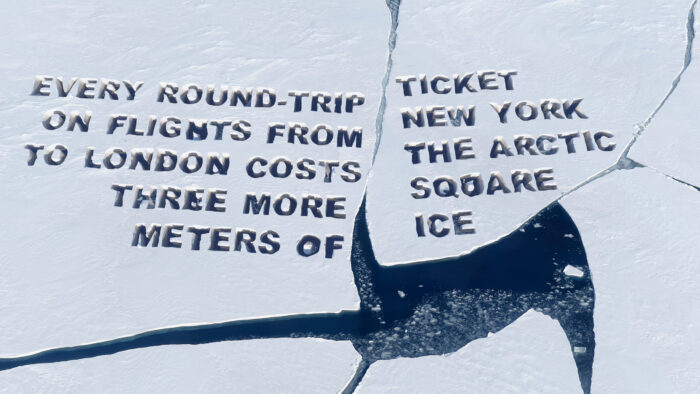 EVERY ROUND-TRIP TICKET
ON FLIGHTS FROM NEW YORK
TO LONDON COSTS THE ARCTIC
THREE MORE SQUARE
METERS OF ICE